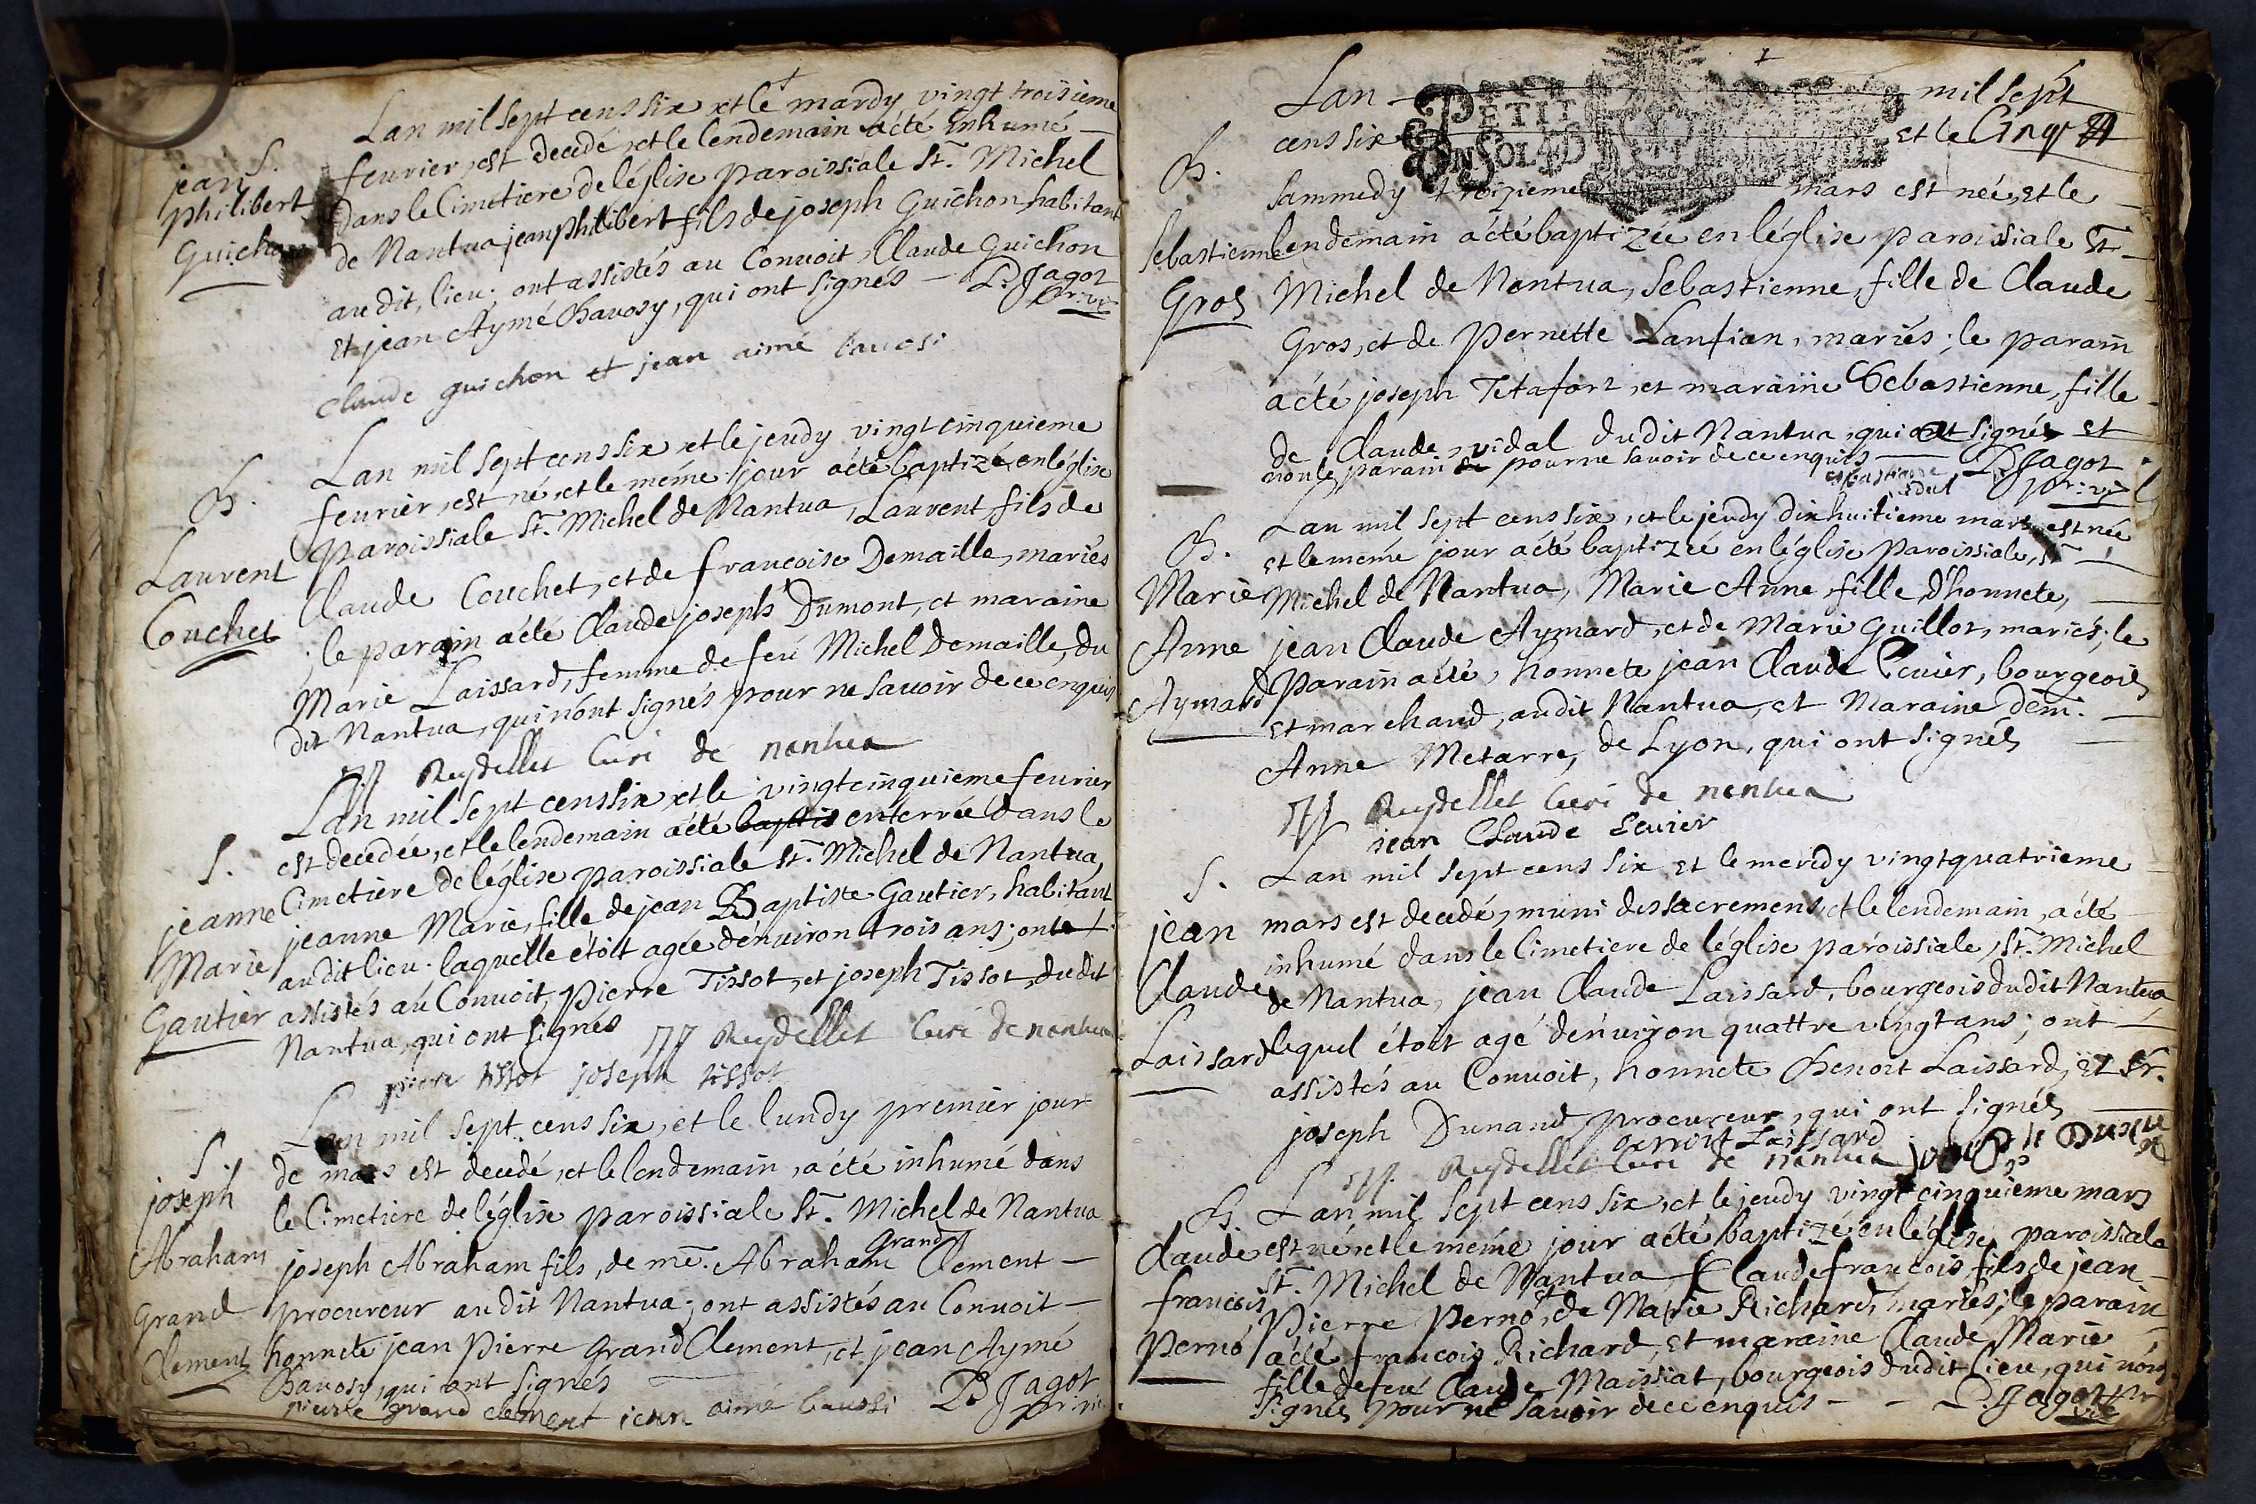 Lan mil sept cens six et le mardy vingt troisieme
feurier, est decedé, et le lendemain a été Enhumé
dans le Cimetiere de léglise paroissiale St. Michel
de Nantua jean philibert fils de joseph Guichon habitant
audit, lieu; ont assistés au Conuoit Claude Guichon
Et jean Aymé Bauosy, qui ont signés — P. Jagot
pr. vic
S.
jean
philibert
Guichon
claude guichon et jean aime bauosi
Lan mil sept cens six et le jeudy vingt cinquieme
feurier, est né, et le méme jour a été baptizé, en léglise
paroissiale St. Michel de Nantua, Laurent, fils de
Claude Couchet, et de francoise Demaille, mariés
; le parain a été Claude joseph Dumont, et maraine
Marie Laissard, femme de feu Michel Demaille, du
dit Nantua, qui nónt signés pour ne sauoir de ce enquis
B.
Laurent
Couchet
Reydellet Curé de nantua
Lan mil sept cens six et le vingt cinquieme feurier
est decedée, et le lendemain a été baptis enterrée dans le
Cimetiere de léglise paroissiale St. Michel de Nantua,
jeanne Marie, fille de jean Baptiste Gautier, habitant
audit lieu. laquelle étoit agée denuiron trois ans; ont
assistés au Conuoit, Pierre Tissot, et joseph Tissot, dudit
Nantua, qui ont signés Reydellet Curé de nantua
S.
jeanne
Marie
Gautier
pierre tissot joseph tissot
Lan mil sept cens six, et le lundy premier jour
de mars est decedé, et le lendemain, a été inhumé dans
le Cimetiere de léglise paroissiale St. Michel de Nantua
joseph Abraham fils, de me. Abraham Grand Clement —
procureur audit Nantua; ont assistés au Conuoit —
honnete jean Pierre Grand Clement, et jean Aymé
Bauosy, qui ont signés
S.
joseph
Abraham
Grand
Clement
pierre grand clement jean aime bauosi P. Jagot
pr. vic.
Lan — mil sept
cens six — et le Cinq
PETIT
UN SOL 4 D
sammedy troizieme mars est née, et le
lendemain a été baptizée en léglise paroissiale St
Michel de Nantua, Sebastienne, fille de Claude
Gros, et de Pernette Lanfian, mariés; le parain
a été joseph Tetafort, et maraine Sebastienne, fille
de Claude vidal dudit Nantua, qui ont signés et
non le parain pour ne sauoir de ce enquis — P. Jagot
pr. vic
B.
Sebastienne
Gros
Lan mil sept cens six, et le jeudy dixhuitieme mars est née
et le méme jour a été baptizée en léglise paroissiale, St
Michel de Nantua, Marie Anne, fille dhonnete,
jean Claude Aymard, et de Marie Guillot, mariés; le
Parain a été, honnete jean Claude Ecuier, bourgeois
et marchand, audit Nantua, et Maraine Dem.
Anne Metarre, de Lyon, qui ont signés
B.
Marie
Anne
Aymard
Reydellet Curé de nantua
jean Claude Ecuier
Lan mil sept cens six et le mercdy vingtquatrieme
mars est decedé, muni des sacremens, et le lendemain, a été
inhumé dans le Cimetiere de léglise paroissiale, St. Michel
de Nantua, jean Claude Laissard, bourgeois dudit Nantua,
lequel étoit agé denuiron quattre vingt ans; ont
assistés au Conuoit, honnete Benoit Laissard, et Sr.
joseph Dunand procureur, qui ont signés
S.
jean
Claude
Laissard
benoit Laissard
Reydellet Curé de nantua
Lan mil sept cens six, et le jeudy vingt cinquieme mars
est né, et le méme jour a été baptizé en léglise, paroissiale
St. Michel de Nantua Claude francois, fils de jean
Pierre Pernó et de Marie Richard, mariés; le parain
a été francois Richard, et maraine Claude Marie
fille de feu Claude Maissiat, bourgeois dudit lieu, qui nónt
signés pour ne sauoir de ce enquis — P. Jagot pr
vic
B.
Claude
francois
Pernó